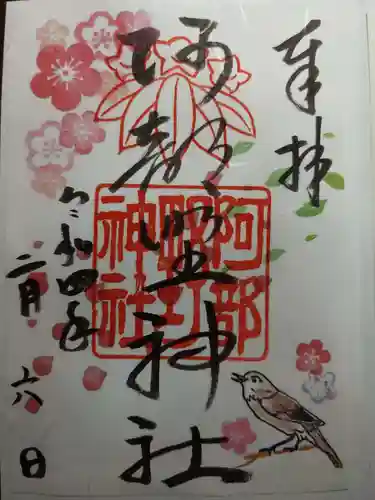 奉拝
阿部野神社
令和四年
二月六日
阿部
野
神社